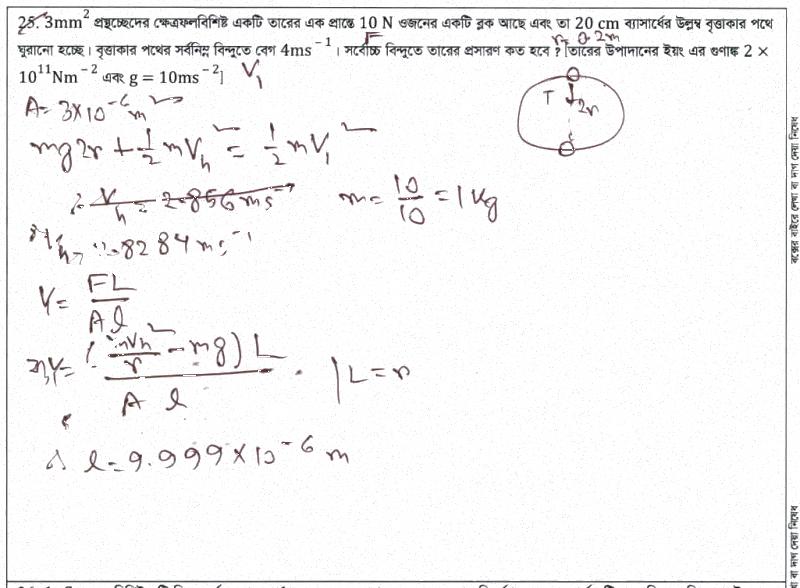 25. 3mm² প্রস্থচ্ছেদের ক্ষেত্রফলবিশিষ্ট একটি তারের এক প্রান্তে 10 N ওজনের একটি ব্লক আছে এবং তা 20 cm ব্যাসার্ধের উলম্ব বৃত্তাকার পথে
F r = 0.2m
ঘুরানো হচ্ছে। বৃত্তাকার পথের সর্বনিম্ন বিন্দুতে বেগ 4ms⁻¹। সর্বোচ্চ বিন্দুতে তারের প্রসারণ কত হবে? [তারের উপাদানের ইয়ং এর গুণাঙ্ক 2 ×
10¹¹Nm⁻² এবং g = 10ms⁻²]
V₁
A = 3×10⁻⁶ m²
T 2r
mg2r + ½ mVₕ² = ½ mV₁²
∴ Vₕ = 2.856 ms⁻¹
m = 10/10 = 1 kg
8284 ms⁻¹
Y = FL/Al
Y = (mVₕ²/r − mg) L / A l
| L = r
∴ l = 9.999 × 10⁻⁶ m
বক্সের বাইরে লেখা বা দাগ দেয়া নিষেধ
বা দাগ দেয়া নিষেধ